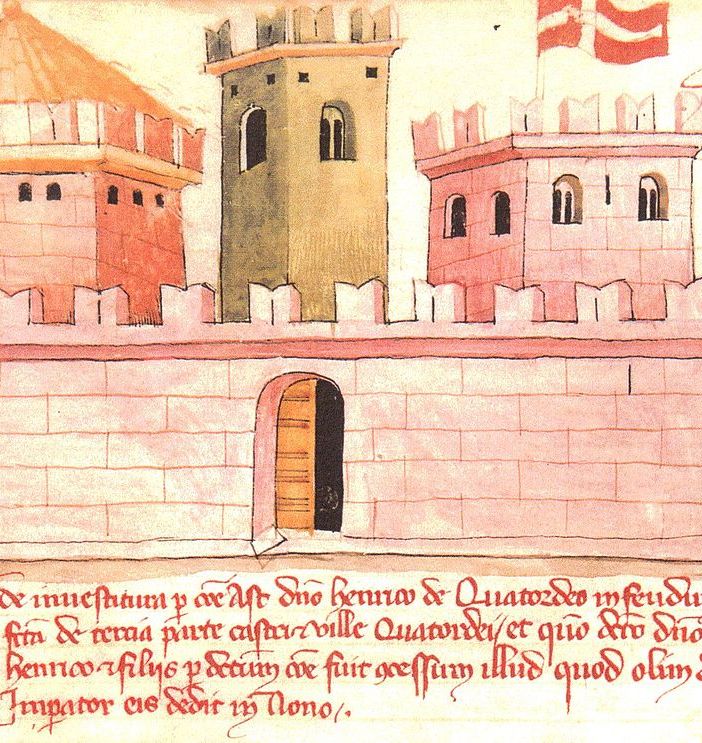 de inuestitura p cōe Ast dn̄o henrico de Quatordeo in feudū
fctā de tercia parte castri ⁊ ville Quatordei, et quō dcō dn̄o
henrico ⁊ filijs p dctum cōe fuit ꝯcessum illud quod olim
Imperator eis dedit in Nono.